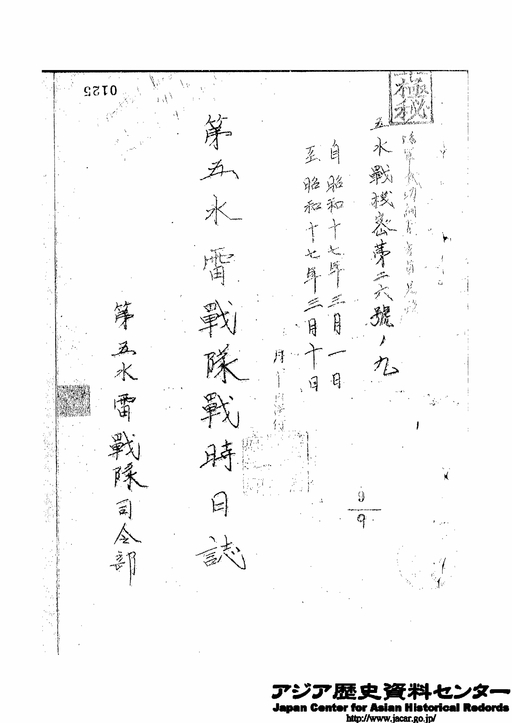 極秘
五水戰機密第二六號ノ九
自昭和十七年三月一日
至昭和十七年三月十日
第五水雷戰隊戰時日誌
第五水雷戰隊司令部
9
9
0125
アジア歴史資料センター
Japan Center for Asian Historical Records
http://www.jacar.go.jp/